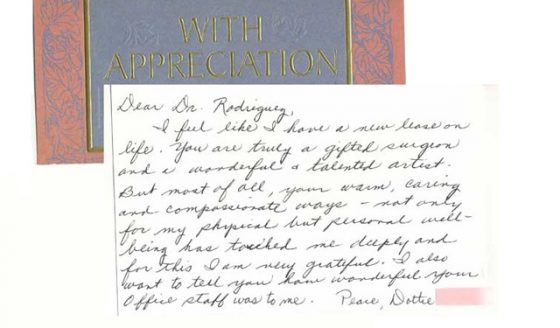 WITH
APPRECIATION
Dear Dr. Rodriguez,
I feel like I have a new lease on
life. You are truly a gifted surgeon
and a wonderful & talented artist.
But most of all, your warm, caring
and compassionate ways - not only
for my physical but personal well-
being has touched me deeply and
for this I am very grateful. I also
want to tell you how wonderful your
Office staff was to me. Peace, Dottie